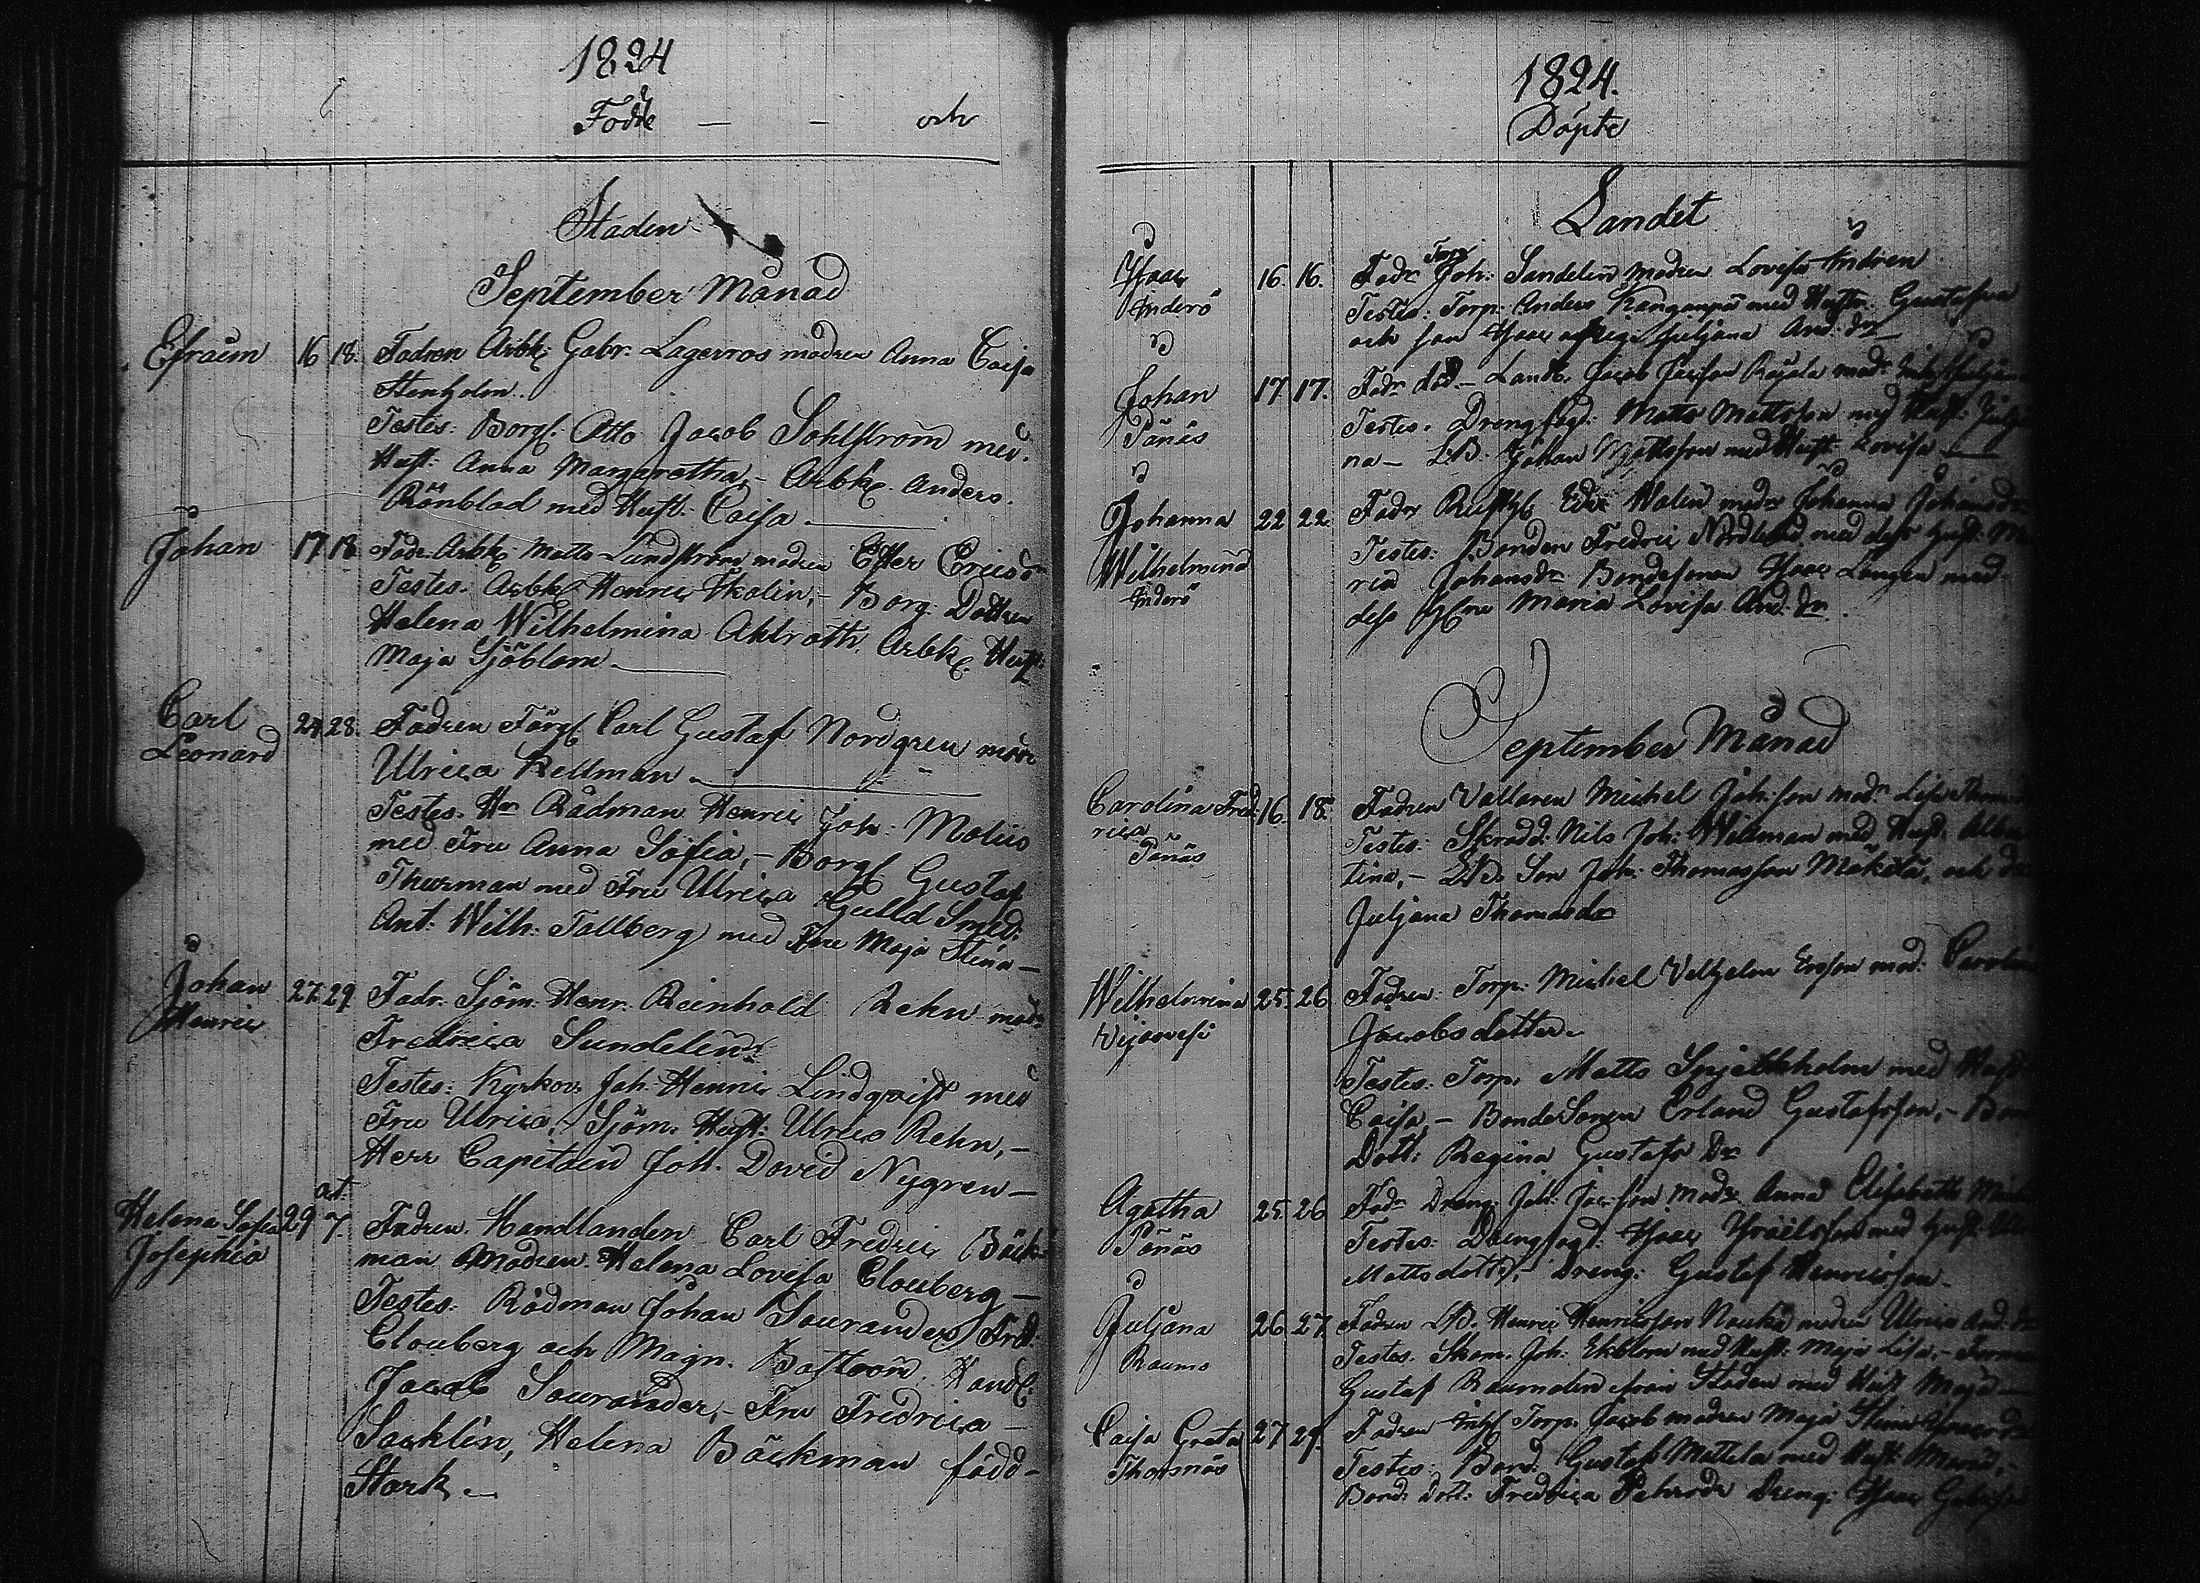 1824
Födde — — och
Staden
September Månad
Efraim 16 18. Fadren Arbk: Gabr. Lagerros modren Anna Caisa
Stenholm.
Testes: Borgl. Otto Jacob Sohlström med
Hust: Anna Margaretha, – Arbk. Anders
Rönblad med Hust. Caisa
Johan 17 18 Fadr. Arbk. Matts Lundström modren Ester Ericsdr
Testes. Arbk. Henric Skolin, – Borg. Dottren
Helena Wilhelmina Ahlroth. Arbk. Hust:
Maja Sjöblom
Carl 24 28. Fadren Färg. Carl Gustaf Nordgren modr
Leonard Ulrica Kellman
Testes. Hr Rådman Henric Joh: Moliis
med Fru Anna Sofia, – Borgl. Gustaf
Thurman med Fru Ulrica Guld Smed:
Ant: Wilh: Tallberg med Fru Maja Stina –
Johan 27 29 Fadr. Sjöm. Henr. Reinhold Rehn modr
Henric Fredrica Sundelin
Testes: Kyrkov. Joh. Henric Lindqvist med
Fru Ulrica, Sjöm. Hust: Ulrica Rehn, –
Herr Capitain Joh. David Nygren –
oct.
Helena Sofia 29 7. Fadren Handlanden Carl Fredric Bäck-
Josephia man Modren Helena Lovisa Clouberg –
Testes: Rådman Johan Sourander, Fred:
Clouberg och Magn. Boström Handl:
Jacob Sourander, – Fru Fredrica –
Sacklin, Helena Bäckman född –
Stark. –
1824.
Döpte
Landet
Isaac 16. 16. Fadr Torp Joh: Sandelin modren Lovisa Andren
Anderö Testes: Torp. Anders Kanganpä med Hustr. Gustafva
och son Isaac Juliana And: dr
Johan 17 17. Fadr död – Landb. Jacob Röjola modr
Pänäs Testes. Drengfogd: Matts Mattsson med Hust:
na – LB. Johan Mattsson med Hust. Lovisa
Johanna 22 22. Fadr Eric Walin modr Johanna Johansdr
Wilhelmina Testes: Bonden Fredric Nordlund med dess Hust: Ma
Anderö ria Johansdr Bondesonen Isaac Längen med
dess Maria Lovisa And. dr.
September Månad
Carolina Fred: 16. 18. Fadren Vallaren Michel Joh:son modr Lisa
rica Testes: Skrädd: Nils Joh: Widman med Hust. Alber
Pänäs tina, – LB. Son Joh: Thomasson Mäkilä, och
Juljana Thomasdr
Wilhelmina 25 26 Fadren: Torp. Michel Velhelm Ersson mod. Carolina
Jacobsdotter.
Testes: Torp. Matts med Hust
Caisa, – Bonde Sonen Erland Gustafsson, – Bon
Dott: Regina Gustafs Dr
Agatha 25 26 Fadr Dreng Joh: Jacsson modr Anna Elisabeth
Pänäs Testes: Drengfogd: Isaac Israelsson med Hust.
Mattsdott., – Dreng: Gustaf Henricsson.
Juljana 26 27 Fadren LB. Henric Henricsson modren Ulrica And: dr
Raumo Testes. Joh: Ekblom med Hust. Maja Lisa, –
Gustaf Raumolin från Staden med Hust Maja
Caisa Greta 27 29. Fadren Inh. Torp. Jacob modren Maja Stina
Thorsnäs Testes: Bond. Gustaf Mattila med Hust. Maria, –
Bond: Dott: Fredrica Dreng: Isaac